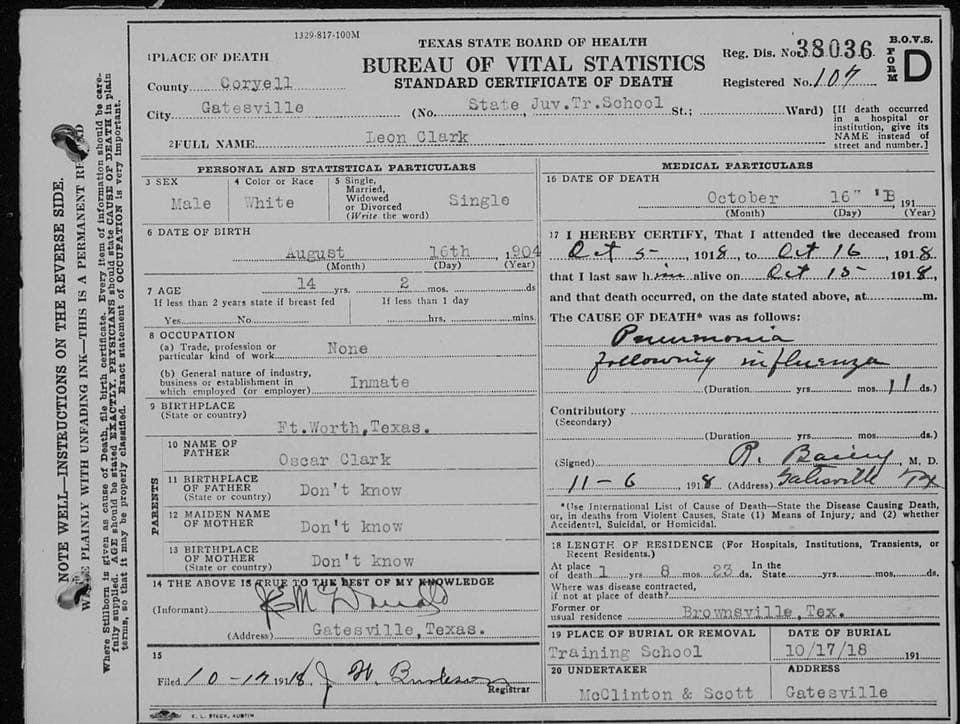 1329-817-100M
TEXAS STATE BOARD OF HEALTH
BUREAU OF VITAL STATISTICS
STANDARD CERTIFICATE OF DEATH
Reg. Dis. No. 38036
Registered No. 107
B.O.V.S.
FORM D
1PLACE OF DEATH
County Coryell
City Gatesville (No. State Juv.Tr.School St.; Ward)
[If death occurred in a hospital or institution, give its NAME instead of street and number.]
2FULL NAME Leon Clark
PERSONAL AND STATISTICAL PARTICULARS
3 SEX Male
4 Color or Race White
5 Single, Married, Widowed or Divorced (Write the word) Single
6 DATE OF BIRTH
August 16th, 1904
(Month) (Day) (Year)
7 AGE 14 yrs. 2 mos. ds
If less than 2 years state if breast fed
Yes No
If less than 1 day
hrs. mins.
8 OCCUPATION
(a) Trade, profession or particular kind of work None
(b) General nature of industry, business or establishment in which employed (or employer) Inmate
9 BIRTHPLACE
(State or country)
Ft.Worth,Texas.
PARENTS
10 NAME OF FATHER Oscar Clark
11 BIRTHPLACE OF FATHER (State or country) Don't know
12 MAIDEN NAME OF MOTHER Don't know
13 BIRTHPLACE OF MOTHER (State or country) Don't know
14 THE ABOVE IS TRUE TO THE BEST OF MY KNOWLEDGE
(Informant) McDonald
(Address) Gatesville,Texas.
15
Filed 10-17 1918 J. W. Burleson
Registrar
K. L. STECK, AUSTIN
MEDICAL PARTICULARS
16 DATE OF DEATH
October 16" 191
(Month) (Day) (Year)
17 I HEREBY CERTIFY, That I attended the deceased from
Oct 5- 1918, to Oct 16, 1918
that I last saw him alive on Oct 15- 1918,
and that death occurred, on the date stated above, at m.
The CAUSE OF DEATH* was as follows:
Pneumonia
following influenza
(Duration yrs. mos. 11 ds.)
Contributory
(Secondary)
(Duration yrs. mos. ds.)
(Signed) R. Bailey, M. D.
11-6 1918 (Address) Gatesville Tex
*Use International List of Cause of Death—State the Disease Causing Death,
or, in deaths from Violent Causes, State (1) Means of Injury; and (2) whether
Accidental, Suicidal, or Homicidal.
18 LENGTH OF RESIDENCE (For Hospitals, Institutions, Transients, or
Recent Residents.)
At place of death 1 yrs 8 mos. 23 ds. In the State yrs. mos. ds.
Where was disease contracted,
if not at place of death?
Former or usual residence Brownsville,Tex.
19 PLACE OF BURIAL OR REMOVAL
Training School
DATE OF BURIAL
10/17/18 191
20 UNDERTAKER
McClinton & Scott
ADDRESS
Gatesville
NOTE WELL—INSTRUCTIONS ON THE REVERSE SIDE.
PLAINLY WITH UNFADING INK—THIS IS A PERMANENT
Where Stillborn is given as cause of Death, file birth certificate. Every item of information should be care-
fully supplied. AGE should be stated EXACTLY. PHYSICIANS should state CAUSE OF DEATH in plain
terms, so that it may be properly classified. Exact statement of OCCUPATION is very important.